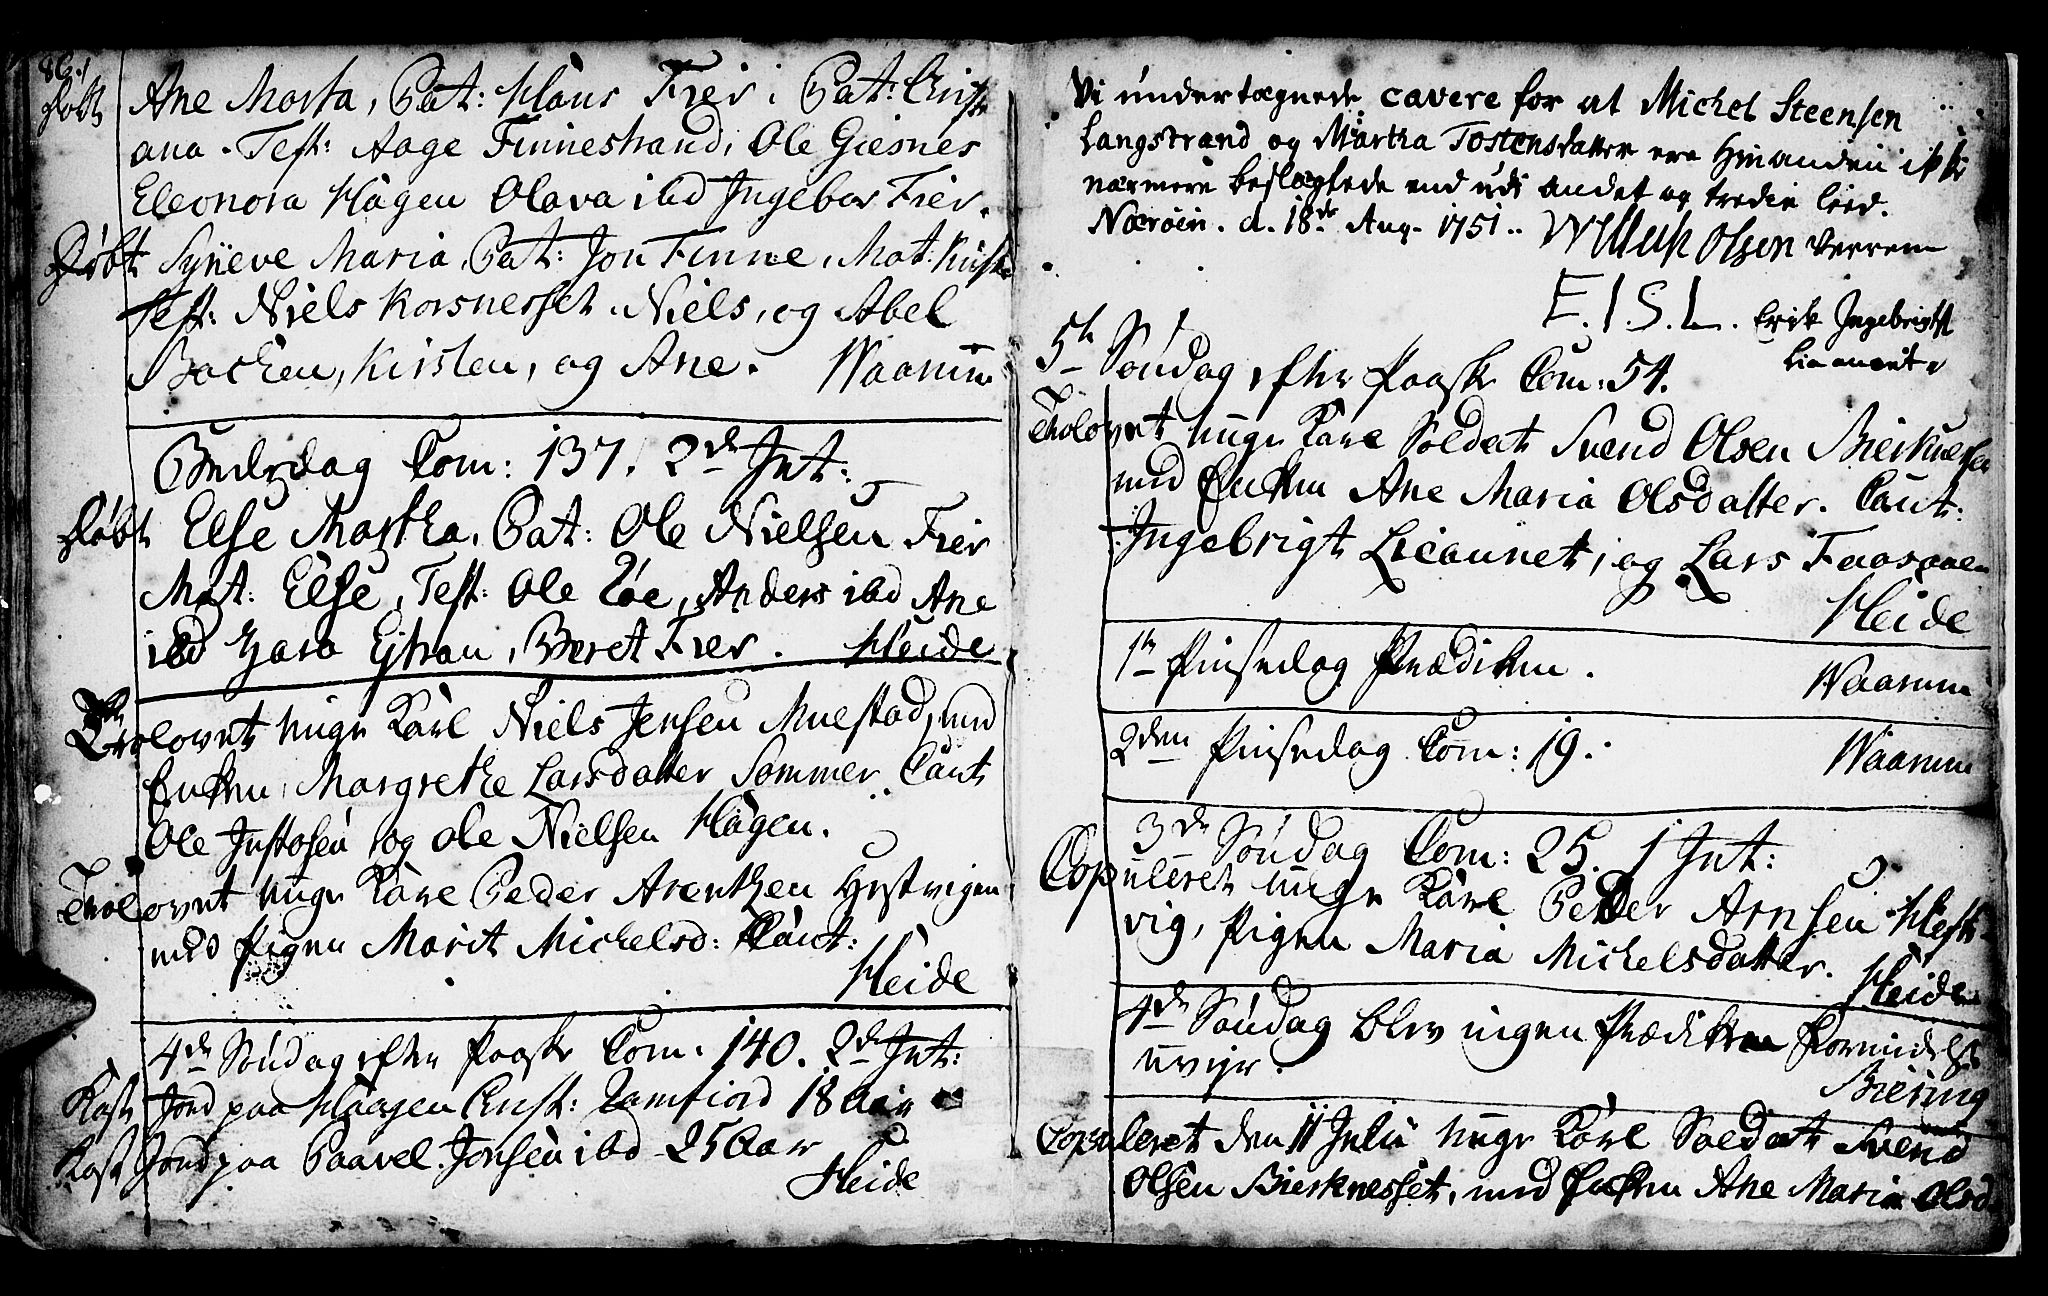 86.
Døbt Ane Marta, Pat: Hans Fier, Pat: Christ
ana. Test: Aage Finnestrand, Ole Giesnes
Eleonora Hagen Olava ibd Ingebor Fier.
Døbt Syneve Maria, Pat: Jon Finne, Mat: Kirst
Test: Niels Korsnesset, Niels, og Abel
Bachen, Kirsten, og Ane. Waarum
Bededag Com: 137. 2de Int:
Døbt Else Martha, Pat: Ole Nielsen Fier
Mat: Else, Test: Ole Røe, Anders ibd Ane
ibd Beret Fier. Heide
Trolovet unge Karl Niels Jensen Muestad, med
Enken, Margrethe Larsdatter Sommer. Caut
Ole Justosen og Ole Nielsen Hagen.
Trolovet unge Karl Peder Arentzen Hestvigen
med Pigen Marit Michelsd: Caut:
Heide
4de Søndag efter Paaske Com. 140. 2de Int:
Kast Jord paa Haagen Christ: Ramfiord 18 Aar
Kast Jord paa Paavel Jonsen ibd 25 Aar
Heide
Vi undertægnede cavere for at Michel Steensen
Langstrand og Martha Tostensdatter ere Hinanden ikke
nærmere beslægtede end udi andet og tredie leed.
Nærøen. d. 18de Aug. 1751. Willuk Olsen Verrem
E.I.S.L. Erik Ingebrigts
Liaaunet
5te Søndag efter Paaske Com: 54.
Trolovet unge Karl Soldat Svend Olsen Bierknesset
med Enken Ane Maria Olsdatter. Caut:
Ingebrigt Licaunet, og Lars Faasaaen
Heide
1te Pinsedag Prædiken. Waarum
2den Pinsedag Com: 19. Waarum
3de Søndag Com: 25. 1 Int:
Copuleret unge Karl Peder Arnsen Hest-
vig, Pigen Maria Michelsdatter. Heide
4de Søndag blev ingen Prædiken formedelst
uvejr. Biering
Copuleret den 11 Julii unge Karl Soldat Svend
Olsen Bierknesset, med Enken Ane Maria Olsd.